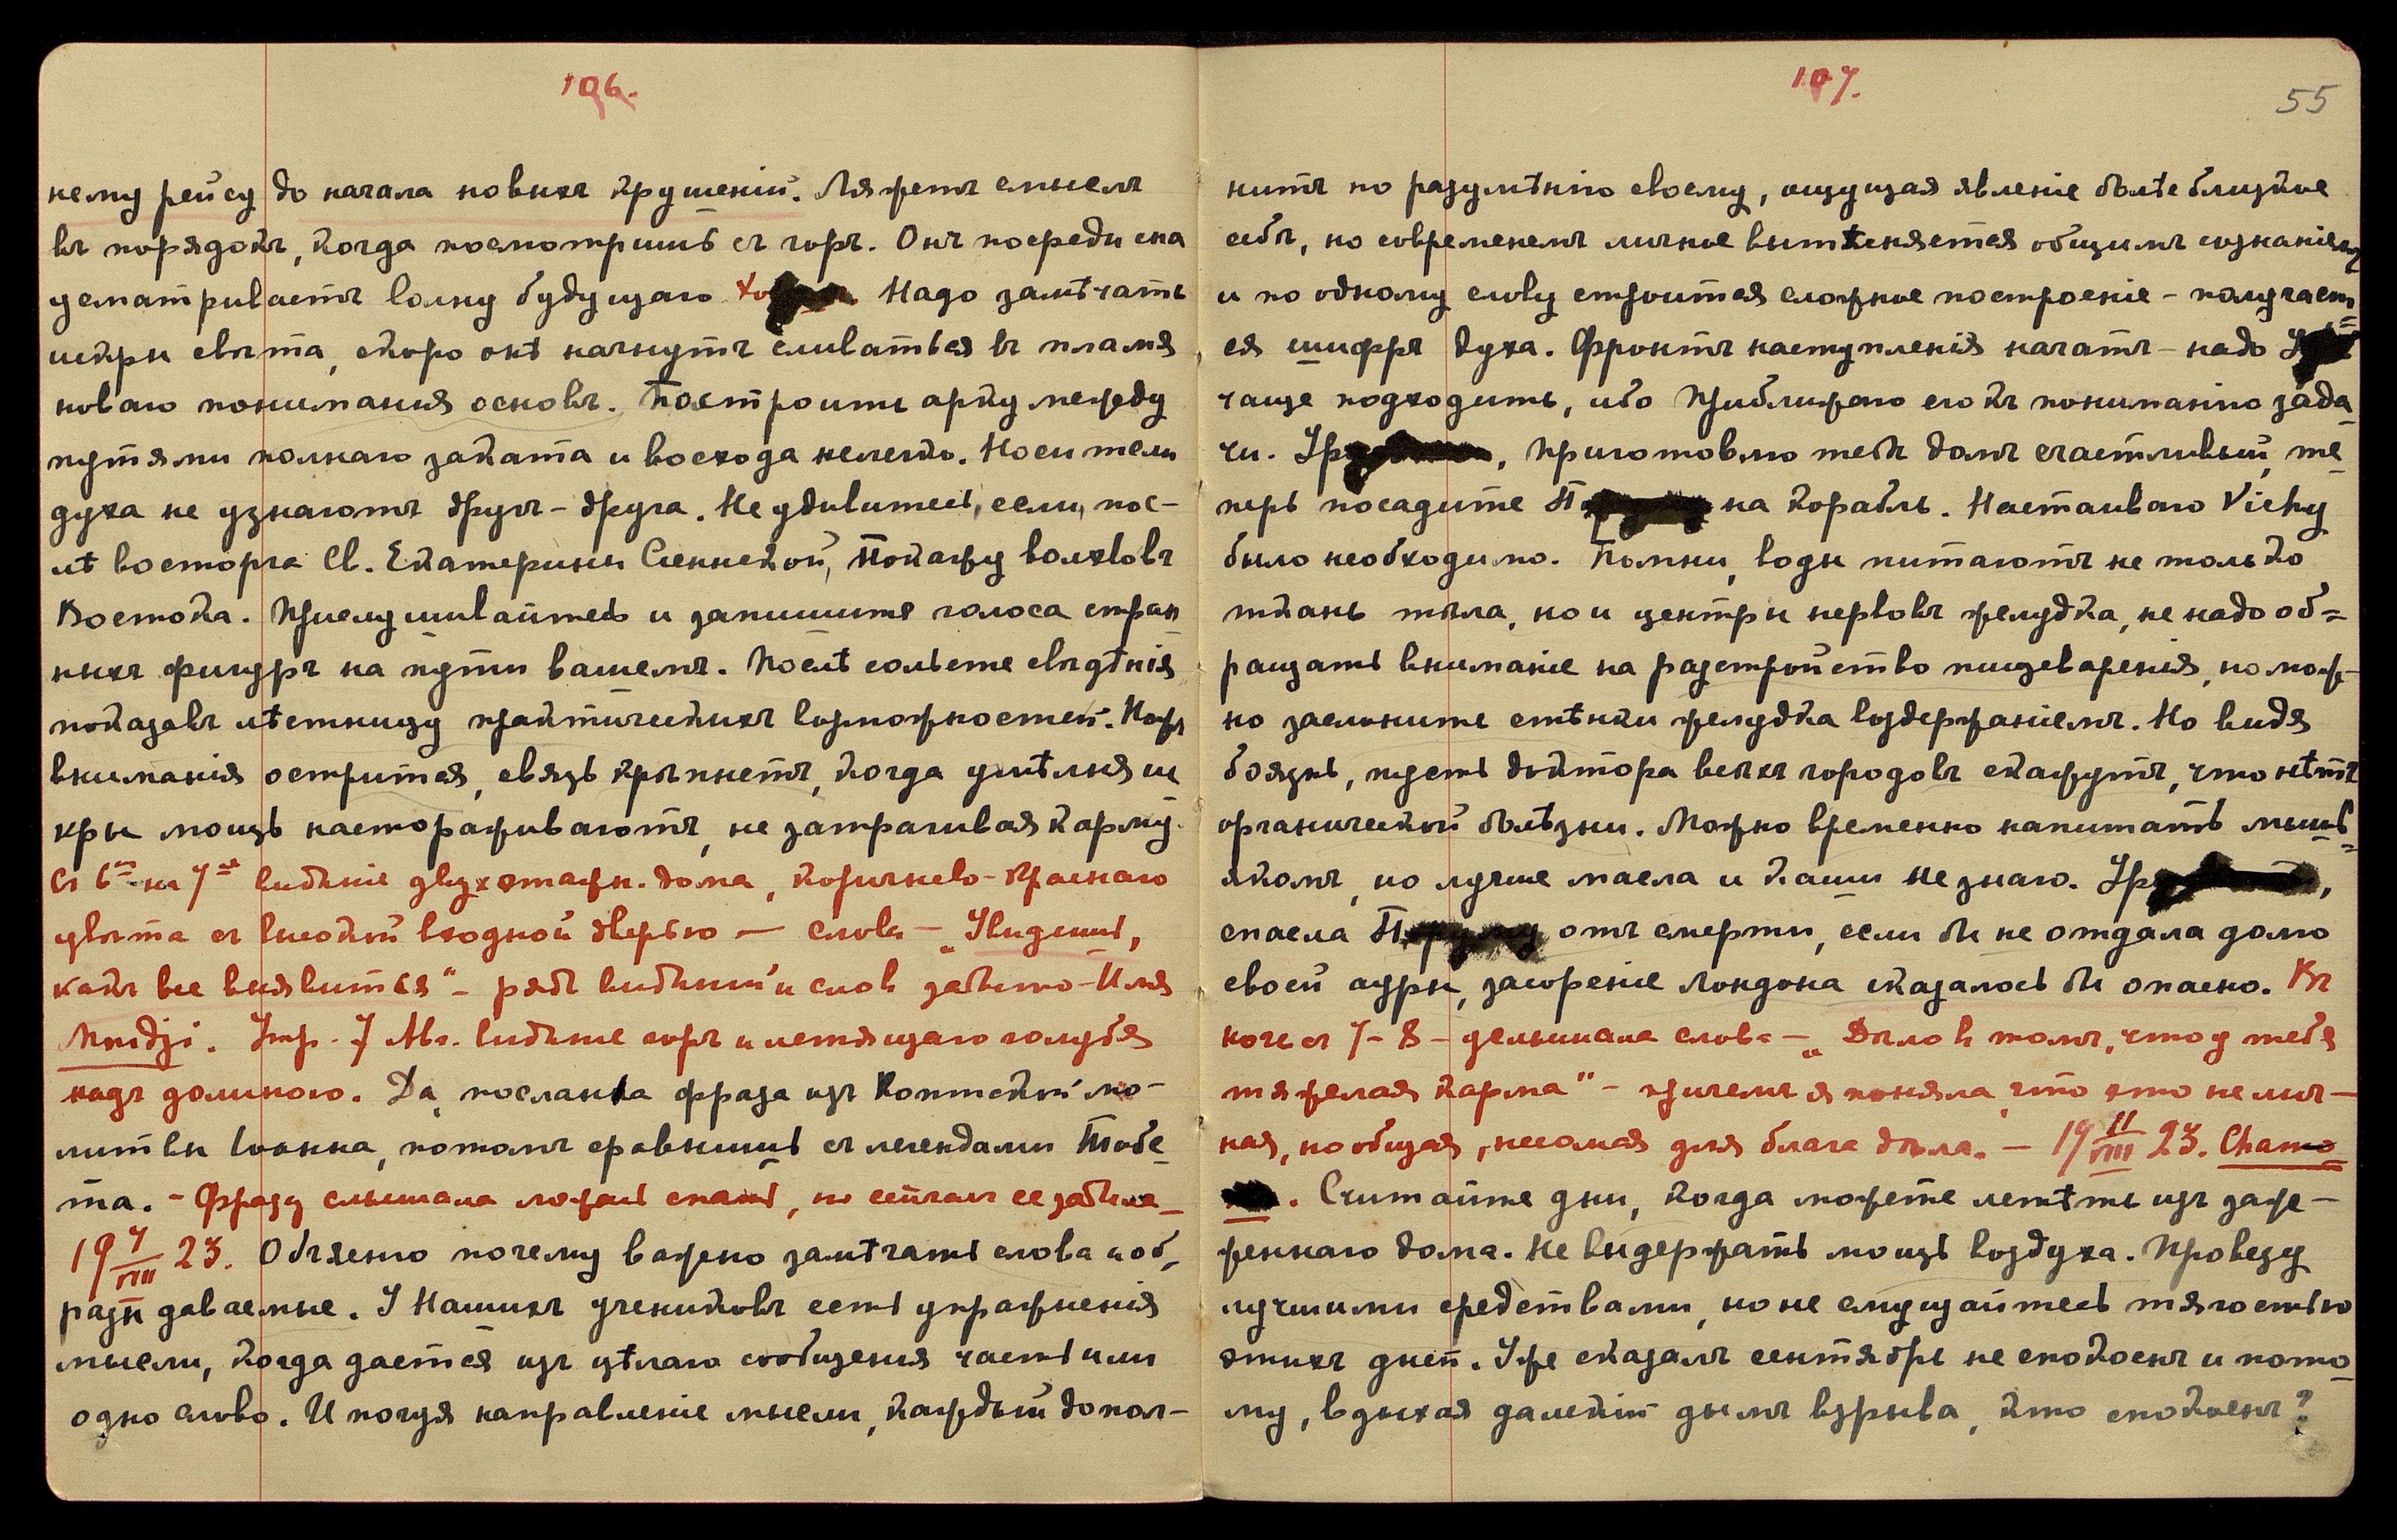 106.
нему рейсу до начала новыхъ крушеній. Ляжетъ смыслъ
въ порядокъ, когда посмотришь съ горъ. Онъ посреди сна
усматриваетъ волну будущаго. Надо замѣчать
искры свѣта, скоро онѣ начнутъ сливаться въ пламя
новаго пониманія основъ. Построить арку между
путями полнаго заката и восхода нелегко. Носители
духа не узнаютъ другъ-друга. Не удивитесь, если, пос-
лѣ восторга Св. Екатерины Сіеннской, покажу волхвовъ
Востока. Прислушивайтесь и запишите голоса стран
ныхъ фигуръ на пути вашемъ. Послѣ сольете свѣдѣнія
показавъ лѣстницу практическихъ возможностей. Ножъ
вниманія острится, связь крѣпнетъ, когда умѣлыя ис
кры мощь настораживаютъ, не затрагивая карму.
Съ 6го на 7ое видѣніе двухэтажн. дома, коричнево-краснаго
цвѣта съ высокой входной дверью — слова — „Увидишь,
какъ все выявится“ — рядъ видѣній и словъ забыто — Имя
Moudji. Утр. 7 Авг. видѣніе горъ и летящаго голубя
надъ долиною. Да, послана фраза изъ Коптской мо-
литвы Іоанна, потомъ сравнишь съ легендами Тибе
та. - Фразу слышала ложась спать, но сейчасъ ее забыла -
19 7/VIII 23. Объясню почему важно замѣчать слова и об-
разы даваемые. У Нашихъ учениковъ есть упражненія
мысли, когда дается изъ цѣлаго сообщенія часть или
одно слово. И почуя направленіе мысли, каждый допол-
107.
55
нитъ по разумѣнію своему, ощущая явленіе болѣе близкое
себѣ, но современемъ личное вытѣсняется общимъ сознаніемъ
и по одному слову строится сложное построеніе - получает
ся шифръ духа. Фронтъ наступленія начатъ - надо
чаще подходить, ибо приближаю его къ пониманію зада
чи. Ур, приготовлю тебѣ домъ счастливый, те
перь посадите П на корабль. Настаиваю Vichy
было необходимо. Помни, воды питаютъ не только
ткань тѣла, но и центры нервовъ желудка, не надо об=
ращать вниманіе на разстройство пищеваренія, но мож-
но заслоните стѣнки желудка воздержаніемъ. Но видя
боязнь, пусть доктора всѣхъ городовъ скажутъ, что нѣтъ
органической болѣзни. Можно временно напитать мышь=
якомъ, но лучше масла и каши не знаю. Ур,
спасла П отъ смерти, если бы не отдала долю
своей ауры, засореніе Лондона сказалось бы опасно. Въ
ночь съ 7-8 - услышала слова — „Дѣло въ томъ, что у тебя
тяжелая карма“ - причемъ я поняла, что это не лич-
ная, но общая, несомая для блага дѣла. — 19 11/VIII 23. Chamo
. Считайте дни, когда можете летѣть изъ зара-
женнаго дома. Не выдержать мощь воздуха. Провезу
лучшими средствами, но не смущайтесь тягостью
этихъ дней. Уже сказалъ сентябрь не спокоенъ и пото
му, вдыхая далекій дымъ взрыва, кто спокоенъ?